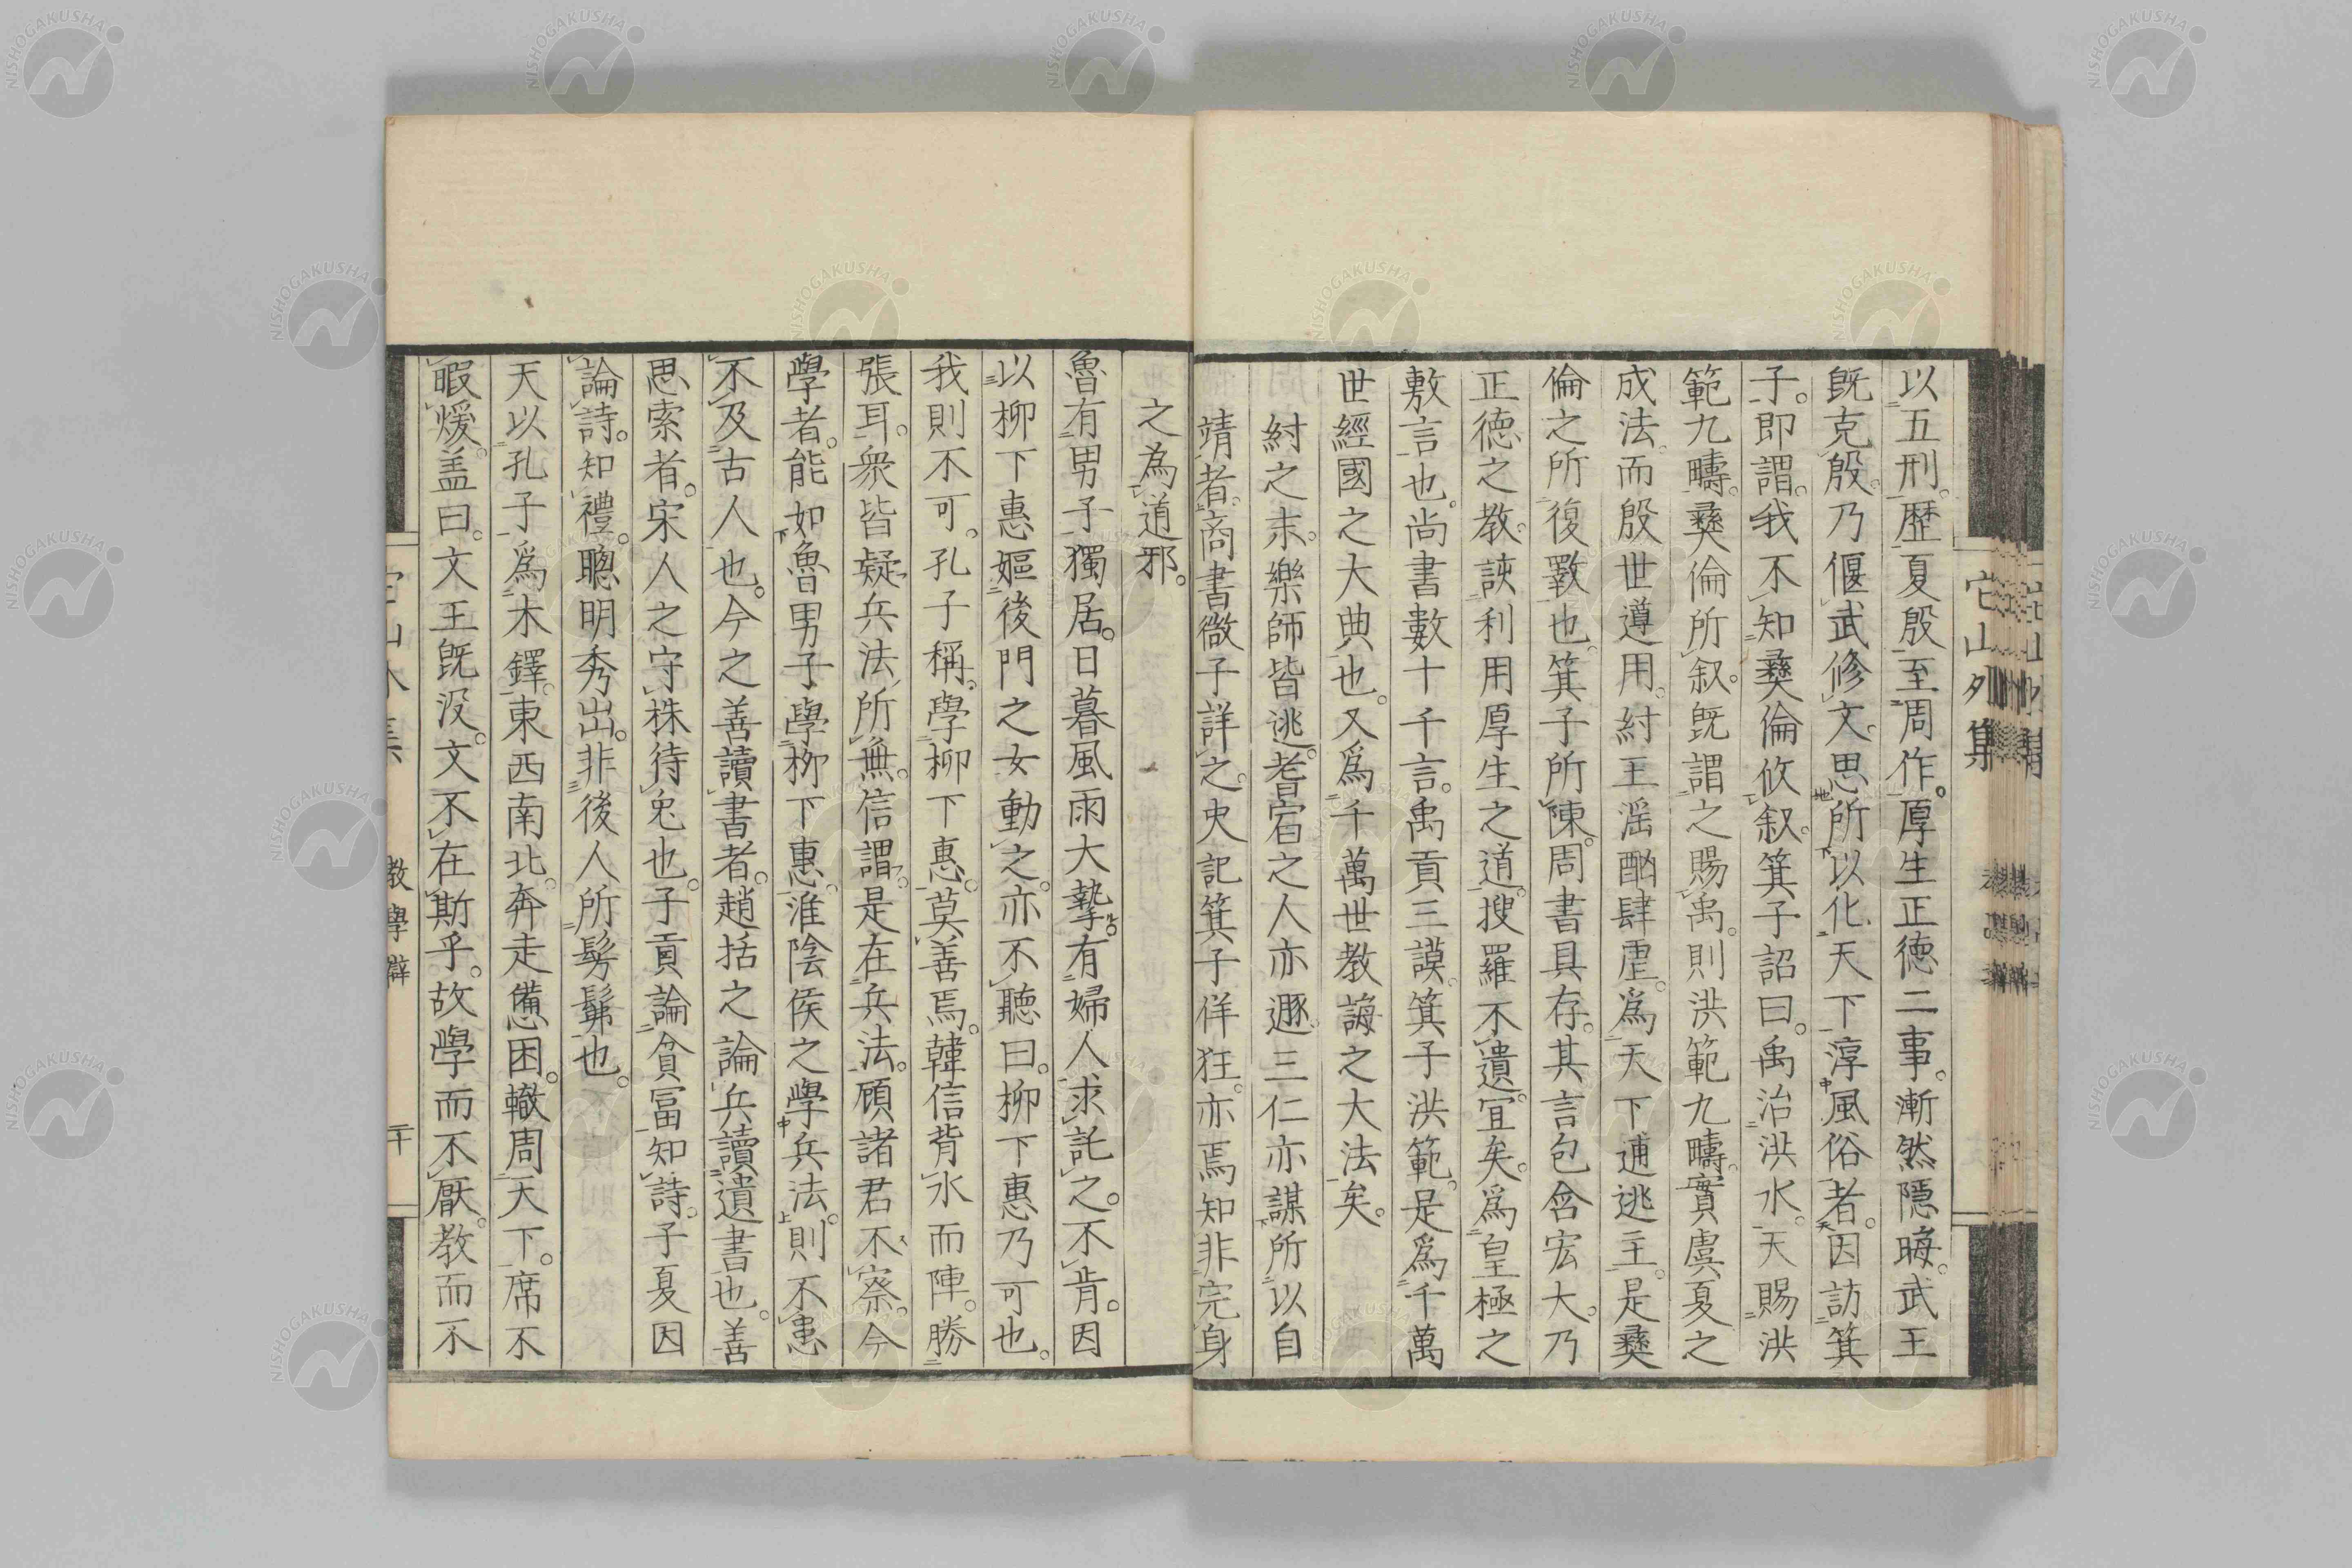 以五刑。歴夏殷至周作。厚生正德二事。漸然隱晦。武王
既克殷。乃偃武修文。思所以化天下淳風俗者。因訪箕
子。即謂。我不知彝倫攸叙。箕子詔曰。禹治洪水。天賜洪
範九疇。彝倫所叙。既謂之賜禹。則洪範九疇。實虞夏之
成法。而殷世遵用。紂王滛酗肆虐。為天下逋逃主。是彝
倫之所復斁也。箕子所陳。周書具存。其言包含宏大。乃
正德之教。誠利用厚生之道。搜羅不遺。宜矣。為皇極之
敷言也。尚書數十千言。禹貢三謨。箕子洪範。是為千萬
世經國之大典也。又為千萬世教誨之大法矣。
紂之末。樂師皆逃。耆宿之人亦遯。三仁亦謀所以自
靖者。商書微子詳之。史記箕子佯狂。亦焉知非完身
之為道邪。
魯有男子獨居。日暮風雨大摯。有婦人求託之。不肯。因
以柳下惠嫗後門之女動之。亦不聽曰。柳下惠乃可也。
我則不可。孔子稱。學柳下惠。莫善焉。韓信背水而陣。勝
張耳。衆皆疑兵法所無。信謂。是在兵法。顧諸君不察。今
學者。能如魯男子學柳下惠。淮陰侯之學兵法。則不患
不及古人也。今之善讀書者。趙括之論兵讀遺書也。善
思索者。宋人之守株待兔也。子貢論貧富知詩。子夏因
論詩。知禮。聰明秀出。非後人所髣髴也。
天以孔子為木鐸。東西南北。奔走憊困。轍周天下。席不
暇煖。盖曰。文王既沒。文不在斯乎。故學而不厭。教而不
教學辟
二十
它山外集